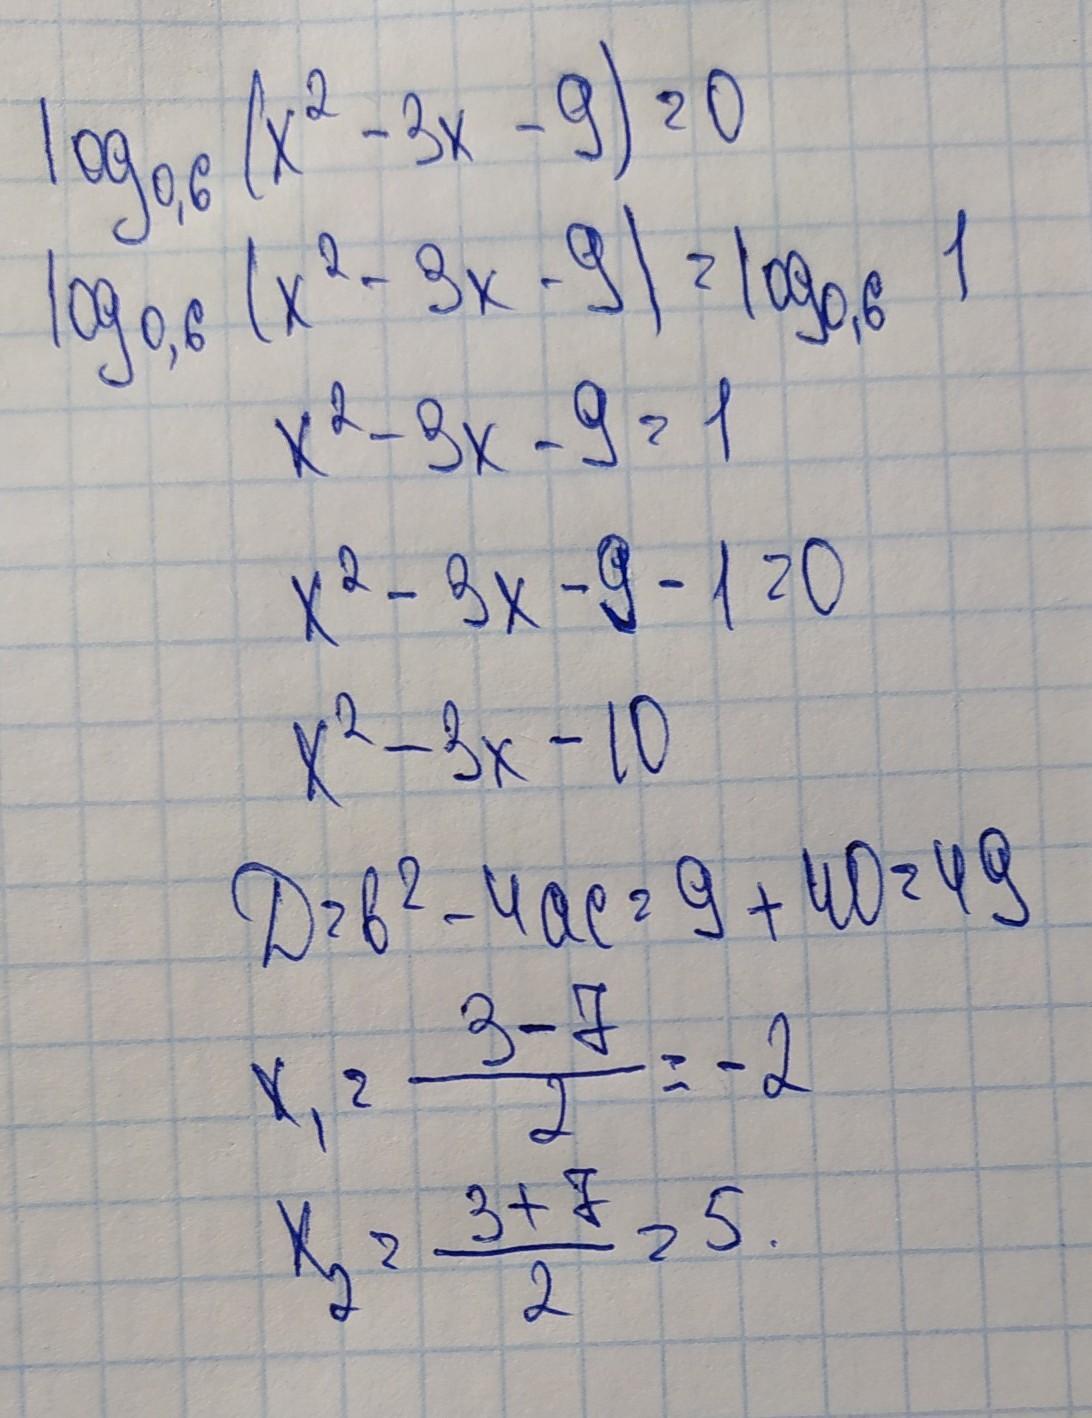 log₀,₆ (x² - 3x - 9) = 0
log₀,₆ (x² - 3x - 9) = log₀,₆ 1
x² - 3x - 9 = 1
x² - 3x - 9 - 1 = 0
x² - 3x - 10
D = b² - 4ac = 9 + 40 = 49
x₁ = (3 - 7)/2 = -2
x₂ = (3 + 7)/2 = 5.